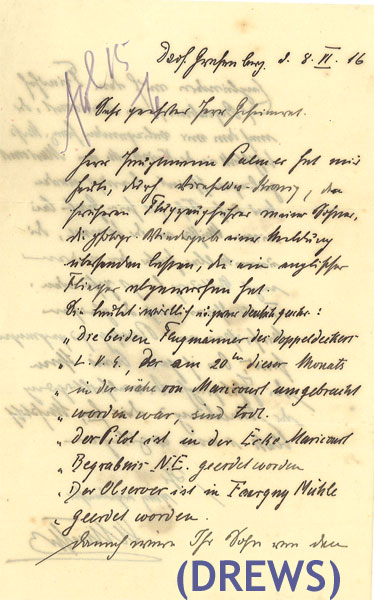 Düss. Grafenberg, d. 8. VI. 16
Sehr geehrter Herr Geheimrat.
Herr Hauptmann Palmer hat mir
heute, durch den
früheren Flugzeugführer meines Sohnes,
die Wiedergabe einer Meldung
übersenden lassen, die ein englischer
Flieger abgeworfen hat.
Sie lautet wörtlich in
„Die beiden Flugmänner des doppeldeckers
„L.V.G., der am 20ten dieser Monats
„in der nähe von Maricourt umgebracht
„worden war, sind tot.
„Der Pilot ist in der Ecke Maricourt
„Begrabnis N.E. geerdet worden
„Der Observer ist in Fargny Mühle
„geerdet worden.
danach wäre Ihr Sohn von dem
(DREWS)